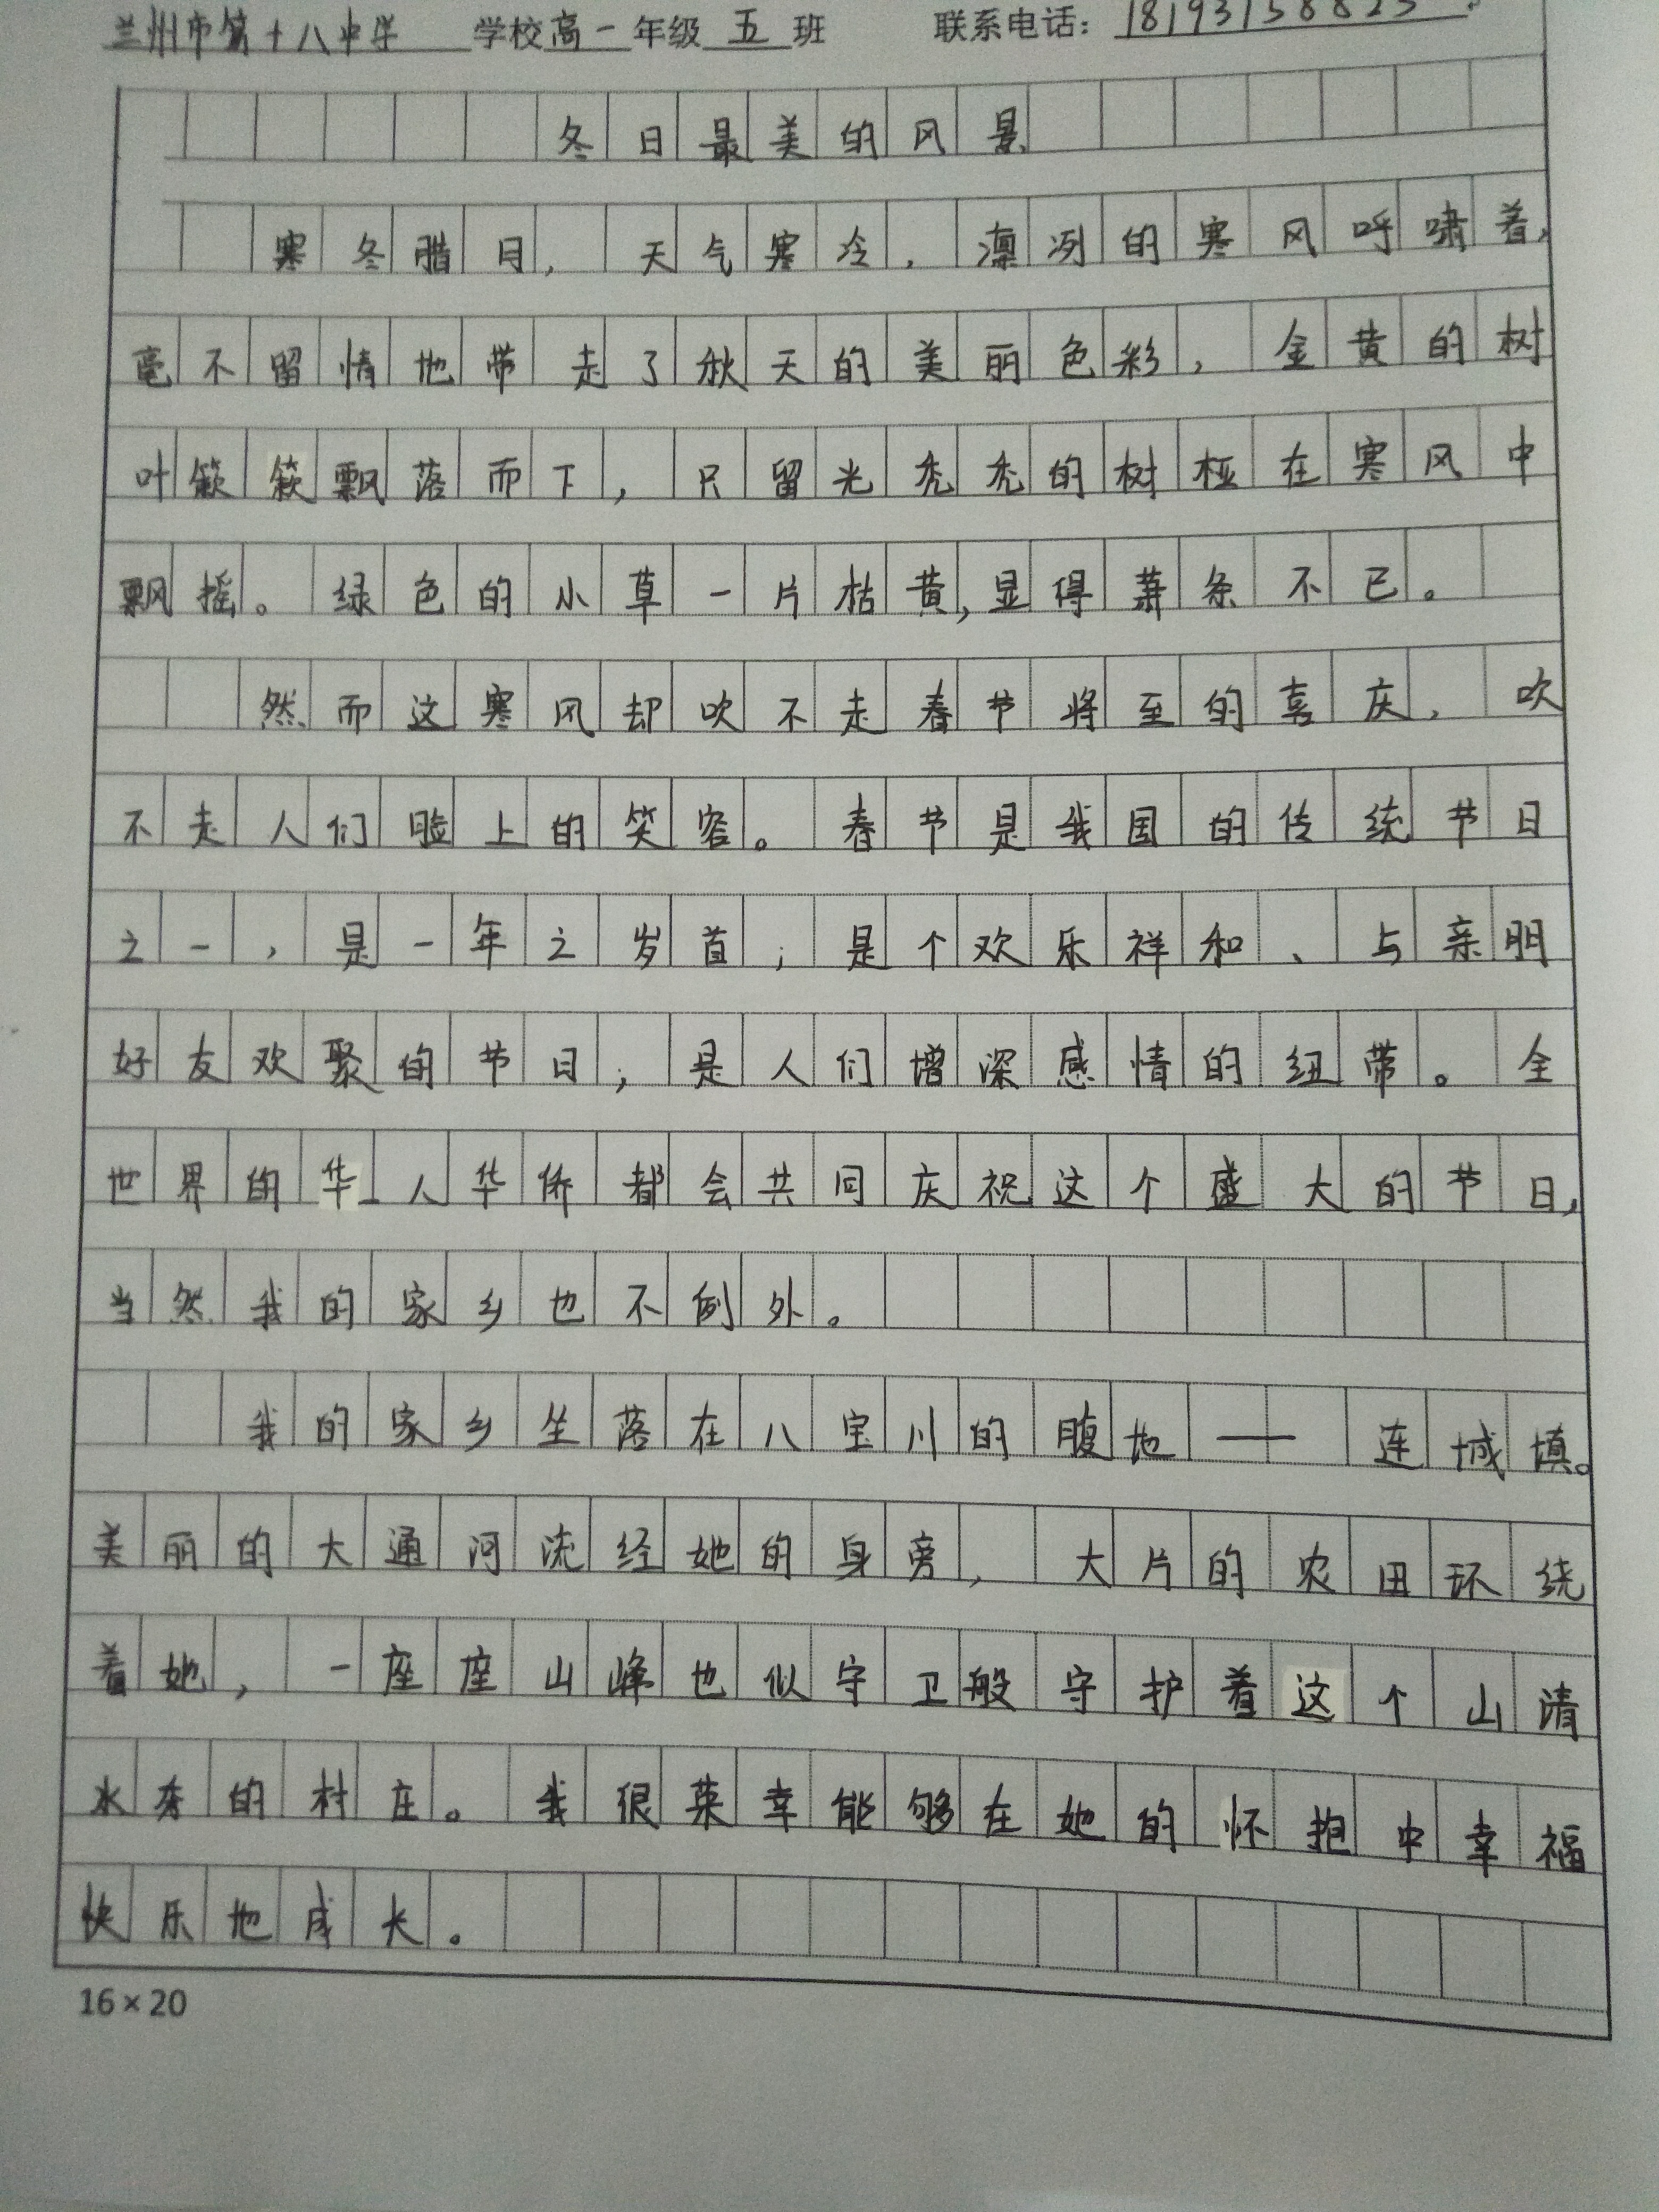 兰州市第十八中学 学校高一年级 五 班 联系电话：
冬日最美的风景
寒冬腊月，天气寒冷，凛冽的寒风呼啸着，
毫不留情地带走了秋天的美丽色彩，金黄的树
叶簌簌飘落而下，只留光秃秃的树桠在寒风中
飘摇。绿色的小草一片枯黄，显得萧条不已。
然而这寒风却吹不走春节将至的喜庆，吹
不走人们脸上的笑容。春节是我国的传统节日
之一，是一年之岁首；是个欢乐祥和、与亲朋
好友欢聚的节日；是人们增深感情的纽带。全
世界的华人华侨都会共同庆祝这个盛大的节日，
当然我的家乡也不例外。
我的家乡坐落在八宝川的腹地——连城镇。
美丽的大通河流经她的身旁，大片的农田环绕
着她，一座座山峰也似守卫般守护着这个山清
水秀的村庄。我很荣幸能够在她的怀抱中幸福
快乐地成长。
16×20